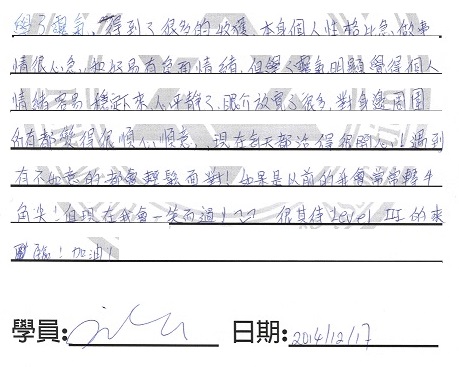 學了靈氣，得到了很多的收獲，本身個人性格比急，做事
情很心急，也容易有負面情緒，但學了靈氣明顯覺得個人
情緒容易穩定下來，心平靜了，眼介放寬了很多，對身邊周圍
所有都覺得很順心順意，現在每天都活得很開心！遇到
有不如意的都會輕鬆面對！如果是以前的我會常常轉牛
角尖！但現在我會一笑而過！^^ 很其待Level II的來
臨！加油！
學員: 日期: 2014/12/17